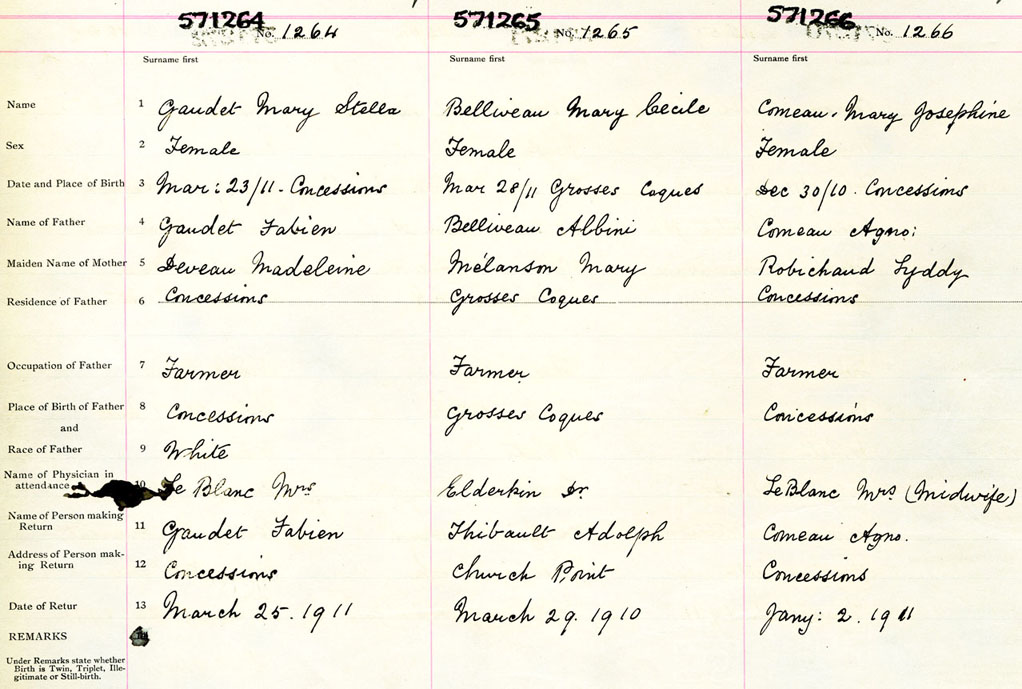 571264 571265 571266
No. 1264 No. 1265 No. 1266
Surname first Surname first Surname first
Name 1 Gaudet Mary Stella Belliveau Mary Cecile Comeau, Mary Josephine
Sex 2 Female Female Female
Date and Place of Birth 3 Mar: 23/11 - Concessions Mar 28/11 Grosses Coques Dec 30/10. Concessions
Name of Father 4 Gaudet Fabien Belliveau Albini Comeau Agno:
Maiden Name of Mother 5 Deveau Madeleine Mélanson Mary Robichaud Lyddy
Residence of Father 6 Concessions Grosses Coques Concessions
Occupation of Father 7 Farmer Farmer Farmer
Place of Birth of Father 8 Concessions Grosses Coques Concessions
and
Race of Father 9 White
Name of Physician in
attendance 10 Le Blanc Mrs Elderkin Dr LeBlanc Mrs (Midwife)
Name of Person making
Return 11 Gaudet Fabien Thibault Adolph Comeau Agno.
Address of Person mak-
ing Return 12 Concessions Church Point Concessions
Date of Retur 13 March 25. 1911 March 29. 1910 Jany: 2. 1911
REMARKS
Under Remarks state whether
Birth is Twin, Triplet, Ille-
gitimate or Still-birth.